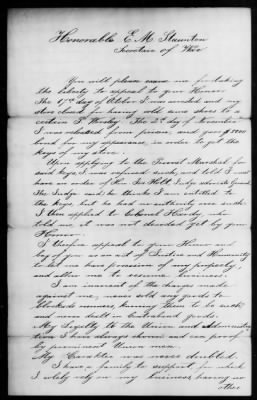 Honorable E. M. Staunton
Secretary of War
You will please excuse me for taking
the liberty to appeal to your Honor.
The 17th day of October I was arrested and my
store closed for having sold some shoes to a
certain P. The 2d day of November
I was released from prison, and gave $ 5000
bond for my appearance, in order to get
the keys of my store.
Upon applying to the Provost Marshal for
said keys, I was refused such, and told I must
have an order of Hon Jos Holt, Judge advocate General.
The Judge said he thinks I am entitled to
the keys, but he had no authority over such.
I then applied to Colonel Hardy, who
told me, it was not decided yet by your
Honor.
I therefore appeal to your Honor and
beg of you as an act of Justice and Humanity
to let me have possession of my property
and allow me to resume business.
I am innocent of the charges made
against me, never sold any goods to
Blockade runners, knowing them to be such,
and never dealt in Contraband goods.
My Loyalty to the Union and Administra-
tion I have always shown and can proof
by prominent Union men.
My Carakter was never doubted.
I have a family to support, for which
I solely rely on my business, having no
other